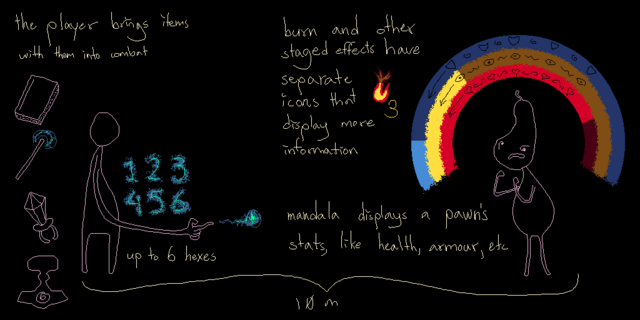 the player brings items
with them into combat
1 2 3
4 5 6
up to 6 hexes
burn and other
staged effects have
separate
icons that
display more
information
3
mandala displays a pawn's
stats, like health, armour, etc
10 m